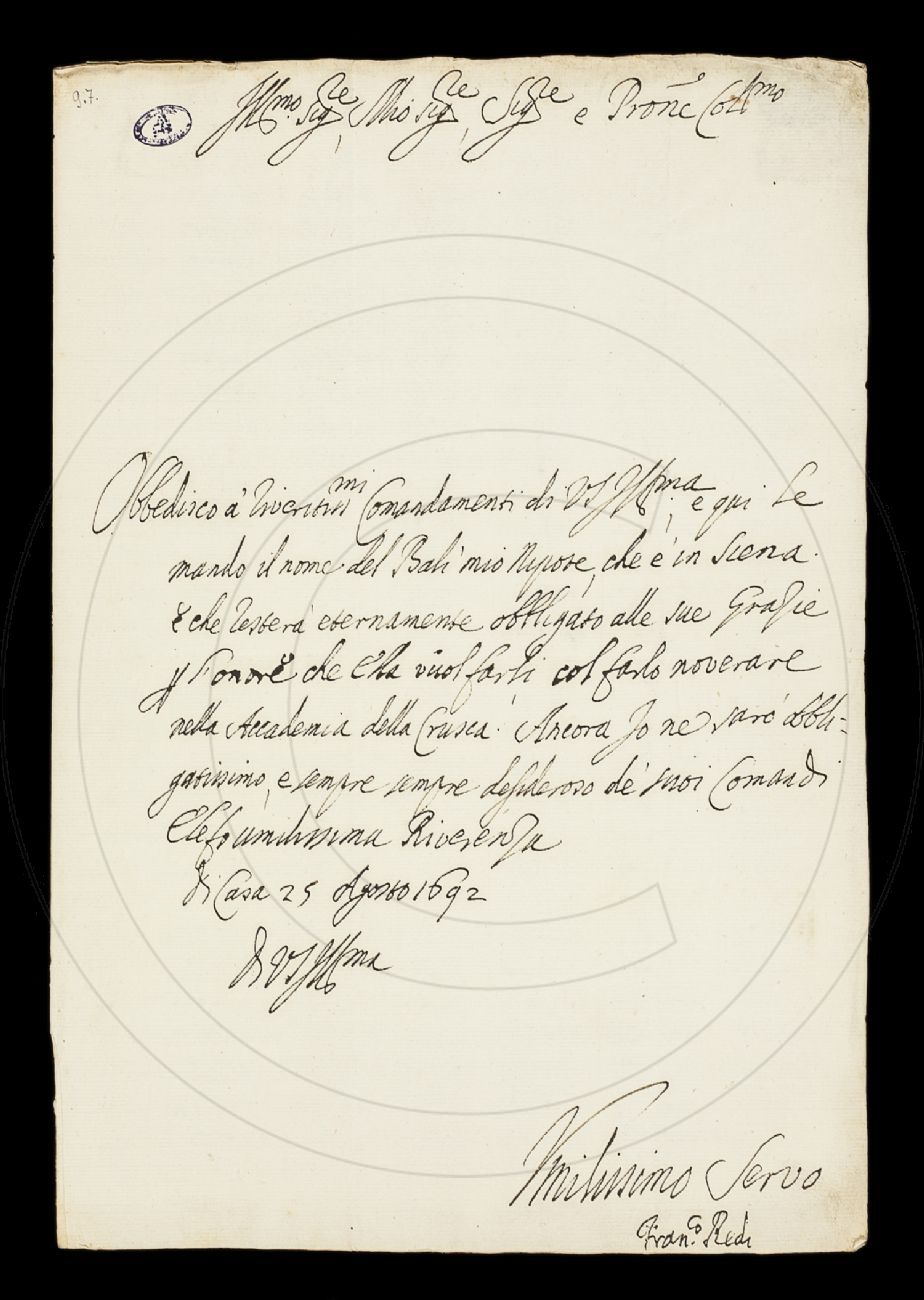 97.
Ill.mo Sig.re, Mio Sig.re, Sig.re e Pron̄e Col.mo
Obbedisco à riveritis.mi Comandamenti di VS Ill.ma, e qui Le
mando il nome del Balì mio Nipote, che è in Siena.
e che resterà eternamente obbligato alle sue Grazie
p l'onore che Ella vuol farli col farlo noverare
nella Accademia della Crusca. Ancora Io ne sarò obbli-
gatissimo, e sempre sempre desideroso de' suoi Comandi
Le fo umilissima Riverenza
di Casa 25 Agosto 1692
di VS Ill.ma
Umilissimo Servo
Fran.co Redi